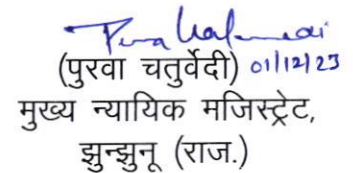 (पुरवा चतुर्वेदी) 01/12/23
मुख्य न्यायिक मजिस्ट्रेट,
झुन्झुनू (राज.)